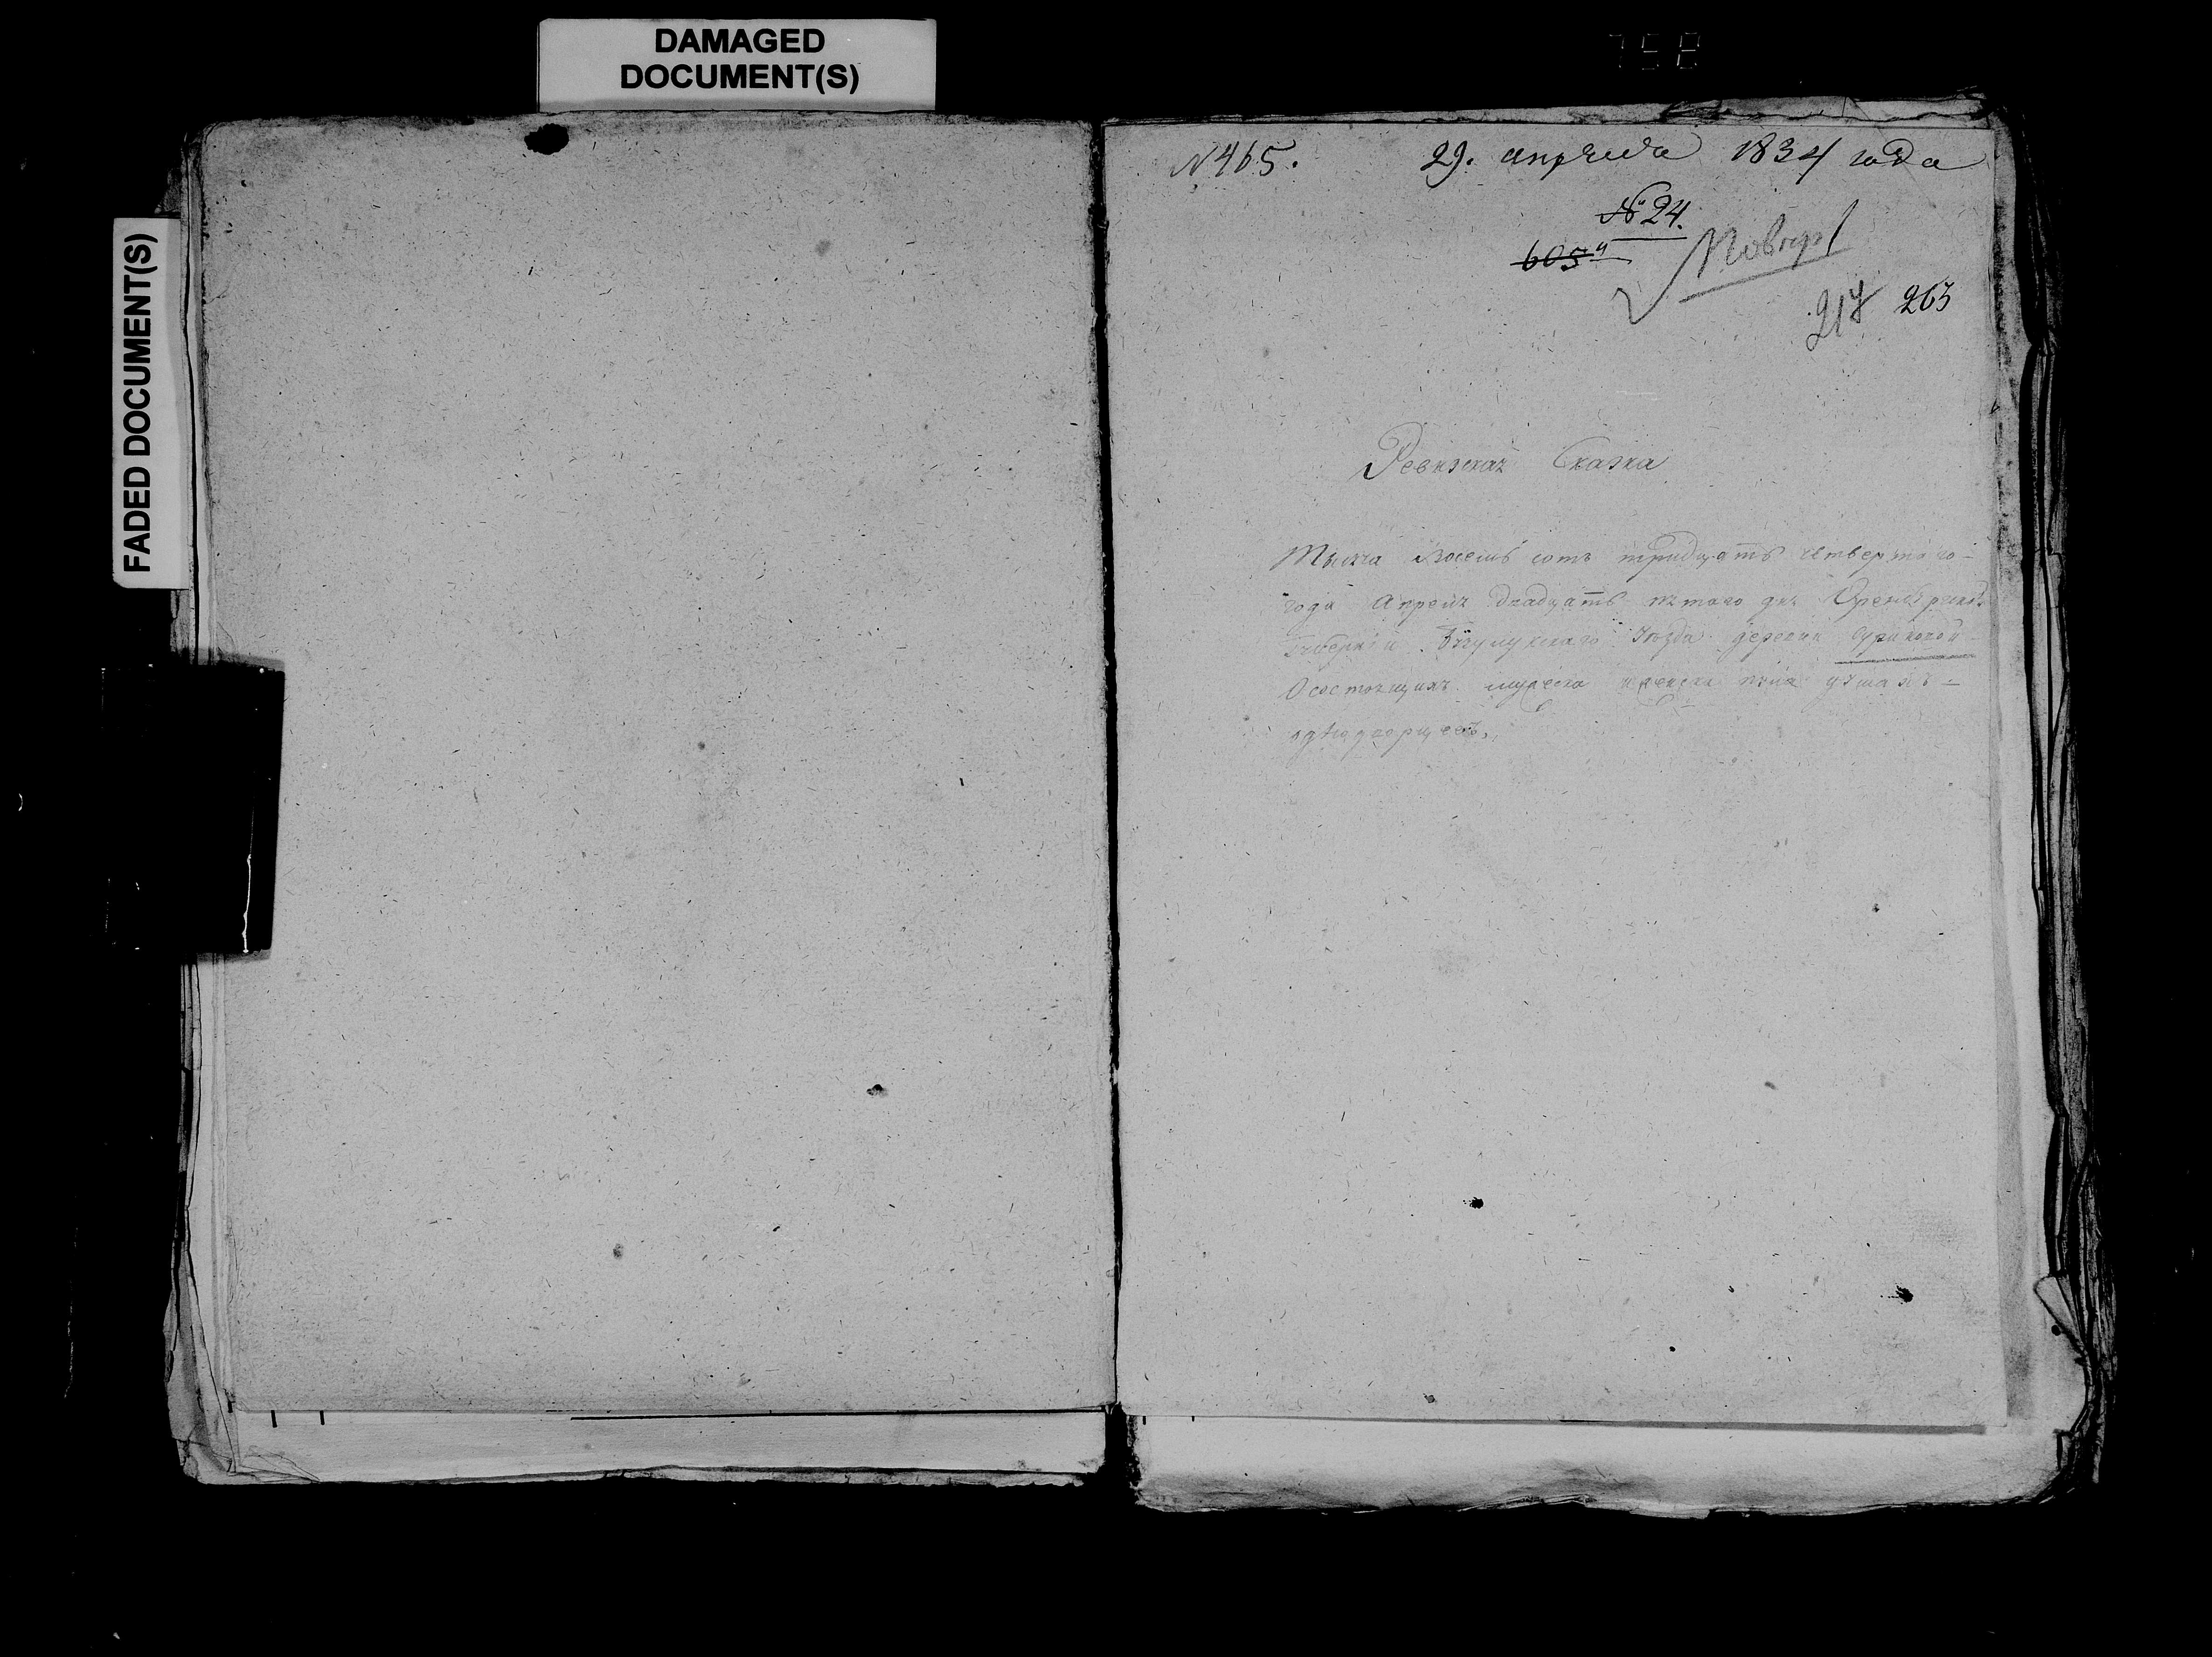 DAMAGED
DOCUMENT(S)
FADED DOCUMENT(S)
N 465. 29. апреля 1834 года
№ 24.
605
217 263
Ревизская Сказка
Тысяча восемь сотъ тридцать четвертаго
года Апреля двадцать пятаго дня Оренбурской
Губернiи Бугулукскаго Уезда деревни
О состоящихъ мужеска и женска пола душахъ
аднодворцевъ.